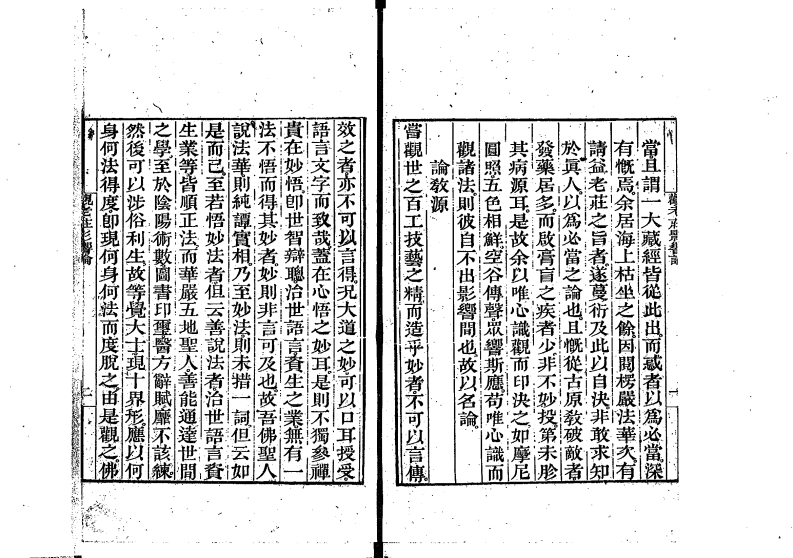 當且謂一大藏經皆從此出而惑者以爲必當深
有慨焉。余居海上枯坐之餘因閱楞嚴法華次。有
請益老莊之旨者。遂蔓衍及此以自決非敢求知
於眞人。以爲必當之論也。且慨從古原敎破敵者
發藥居多。而啟膏肓之疾者少非不妙投。第未胗
其病源耳。是故余以唯心識觀而印決之如摩尼
圓照五色相鮮。空谷傳聲眾響斯應苟唯心識而
觀諸法則彼自不出影響間也。故以名論。
論敎源
嘗觀世之百工技藝之精而造乎妙者不可以言傳。
效之者亦不可以言得。況大道之妙可以口耳授受
語言文字而致哉。蓋在心悟之妙耳。是則不獨參禪
貴在妙悟。卽世智辯聰治世語言資生之業無有一
法不悟而得其妙者。妙則非言可及也。故吾佛聖人
說法華則純譚實相。乃至妙法則未措一詞但云如
是而已。至若悟妙法者但云善說法者治世語言資
生業等皆順正法。而華嚴五地聖人善能通達世間
之學。至於陰陽術數圖書印璽醫方辭賦靡不該練。
然後可以涉俗利生。故等覺大士現十界形。應以何
身何法得度。卽現何身何法而度脫之。由是觀之佛
觀老莊影響論
觀老莊影響論